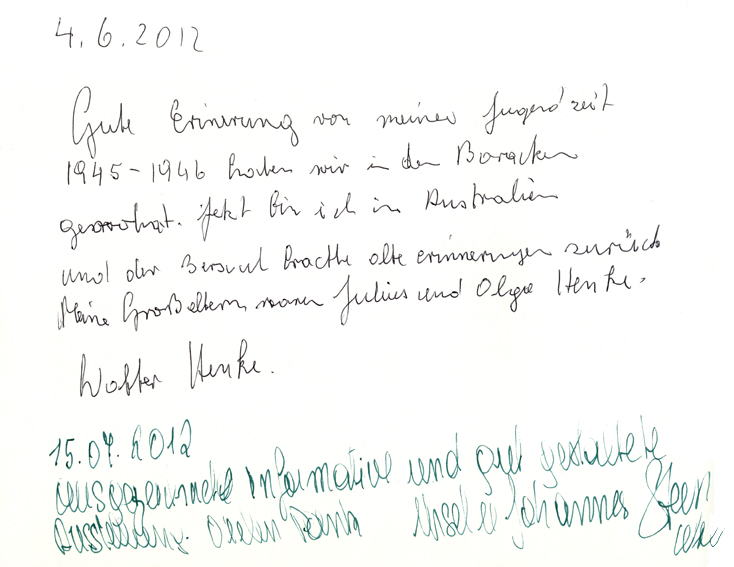 4.6.2012
Gute Erinerung von meiner Jugend zeit
1945-1946 haben wir in den Baracken
gewohnt. jetzt bin ich in Australien
und der Besuch brachte alte erinnerungen zurück
Meine Großeltern waren Julius und Olga Henke.
Walter Henke.
15.07.2012
informative und gut gestaltete
Ausstellung. Vielen Dank Johannes